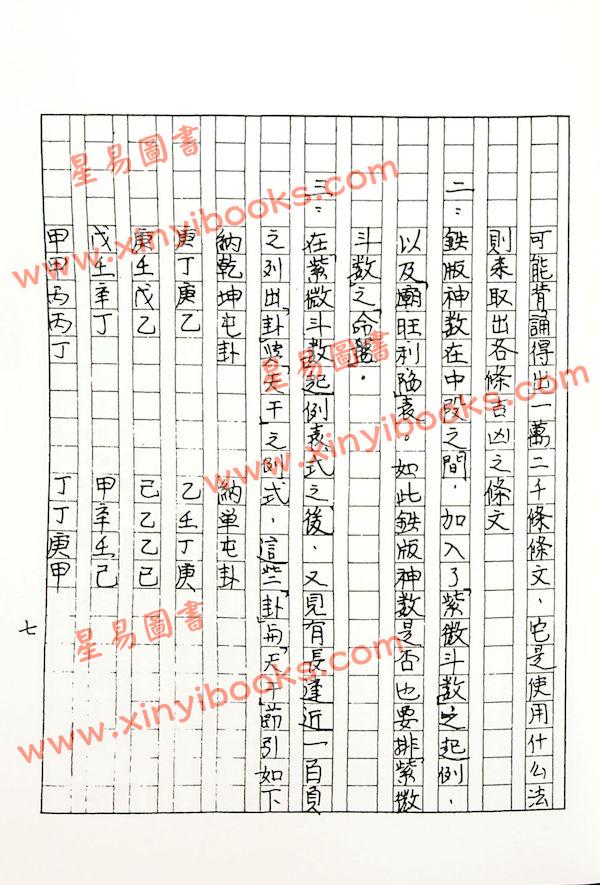 可能背誦得出一萬二千條條文、它是使用什么法
則来取出各條吉凶之條文
二：鉄版神数在中段之間．加入了「紫微斗数」之起例．
以及「廟旺利陷」表。如此鉄版神数是否也要排「紫微
斗数」之「命盤」．
三：在「紫微斗数」起例表式之後．又見有長達近一百頁
之列出「卦」與「天干」之例式．這些「卦」与「天干」節引如下
納乾坤屯卦 納単屯卦
庚丁庚乙 乙壬丁庚
庚壬戊乙 己乙乙已
戊壬辛丁 甲辛壬己
甲甲丙丙丁 丁丁庚甲
七
星易圖書
www.xinyibooks.com
星易圖書
www.xinyibooks.com
星易圖書
www.xinyibooks.com